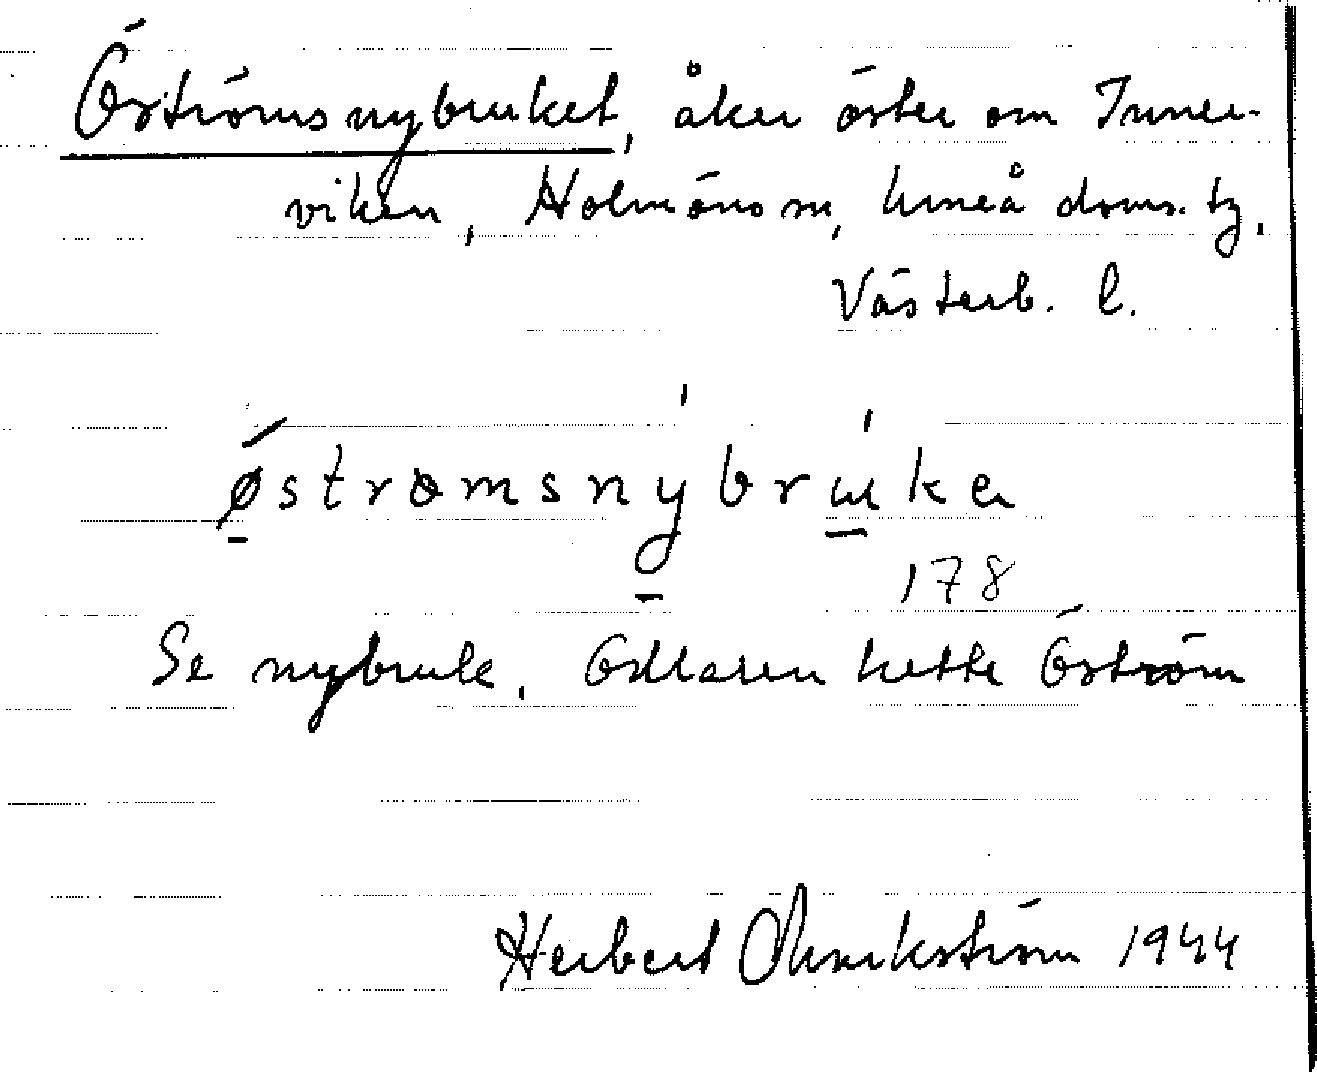 Öströmsnybruket, åker öster om Inner-
viken, Holmöns sn, Umeå doms. tg.
Västerb. l.
østrømsnybrʉkɐ
178
Se nybruk. Odlaren hette Öström
Herbert Markström 1944